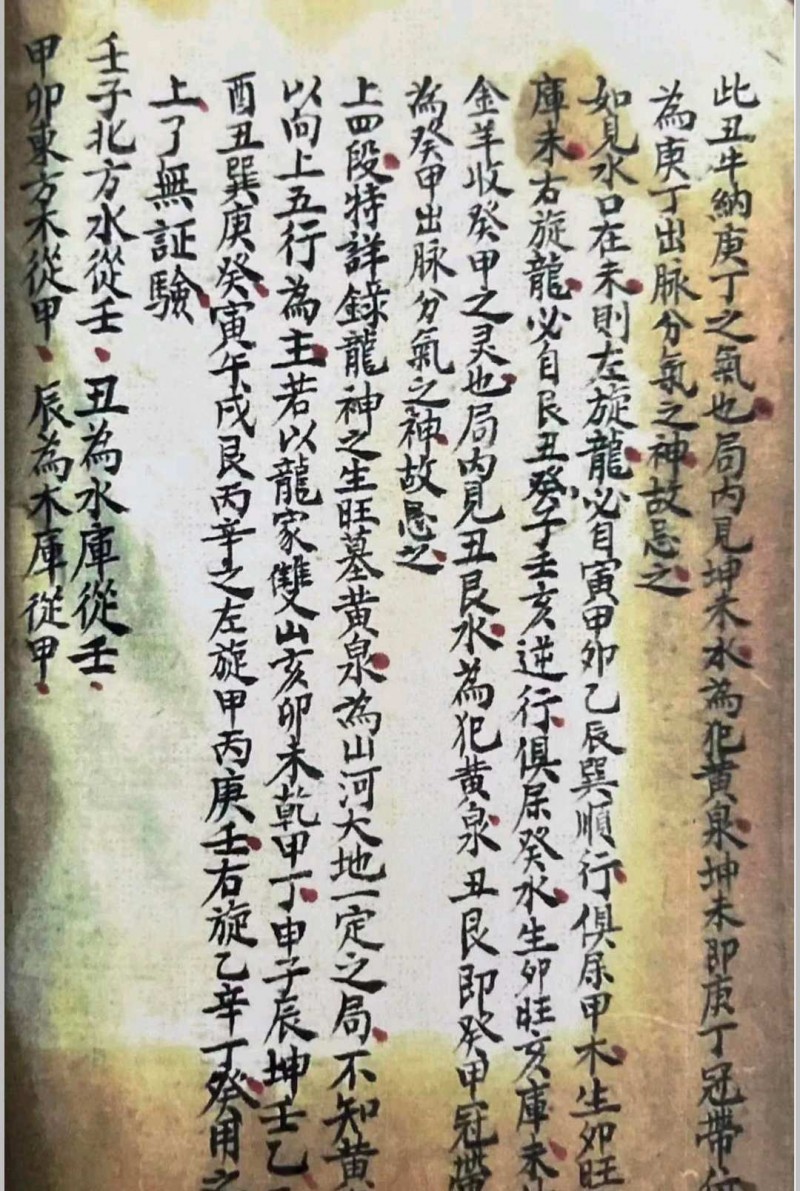 此丑牛納庚丁之氣也局内見坤未水為犯黄泉坤未即庚丁冠帶
為庚丁出脉分氣之神故忌之
如見水口在未則左旋龍必自寅甲卯乙辰巽順行俱屬甲木生卯旺
庫未右旋龍必自艮丑癸子壬亥逆行俱屬癸水生卯旺亥庫未
金羊收癸甲之灵也局内見丑艮水為犯黄泉丑艮即癸甲冠帶
為癸甲出脉分氣之神故忌之
上四段特詳錄龍神之生旺墓黄泉為山河大地一定之局不知黄
以向上五行為主若以龍家雙山亥卯未乾甲丁申子辰坤壬乙
酉丑巽庚癸寅午戌艮丙辛之左旋甲丙庚壬右旋乙辛丁癸用之
上了無証驗
壬子北方水從壬丑為水庫從壬
甲卯東方木從甲辰為木庫從甲